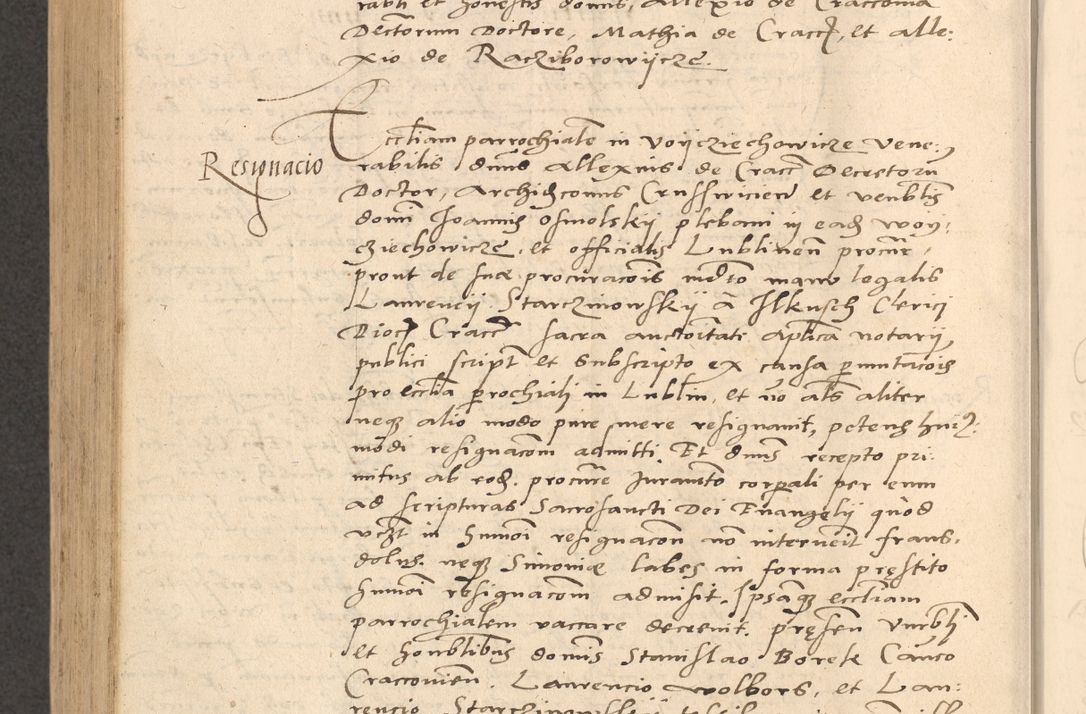 rabli et honestis domis, Allexio de Cracovia
Decretorum Doctore, Mathia de Cracc, et alle:
xio de Racziborowijcze.
Resignacio
Eccliam parrochiale in Voijcziechowicze Vene:
rabilis dnus Allexius de Cracc Decretoru
Doctor, Archidconus Crusswicien et venblis
domi Joannis Osmolskij plebani in ead Woij:
cziechowicze, et officialis Lublinen procur,
prout de sue procuracois mdto manu legalis
Laurencij Starczinowskij a Ilkusch Clerici
Dioc Cracc sacra auctoitati aplica notarij
publici script et subscripto ex causa pmutacois
pro ecclia prochiali in Lublin, et no als aliter
neque alio modo pure mere resignavit, petens hui:
modi resignacom admitti. Et dnus recepto pri:
mitus ab eod. procure Juramto corpali per eum
ad scripturas Sacrosancti Dei Evangelij quod
vczt in hmoi resignacon no intervenit fraus,
dolus, neque Simonie labes in forma prestito
hmoi resignacom admisit, Ipsamque eccliam
parrochialem vaccare decrevit, presen Vnrbli
et honblibus domis Stanislao Borek Canco
Cracovien, Laurencio Wolbors, et Lau:
rencio